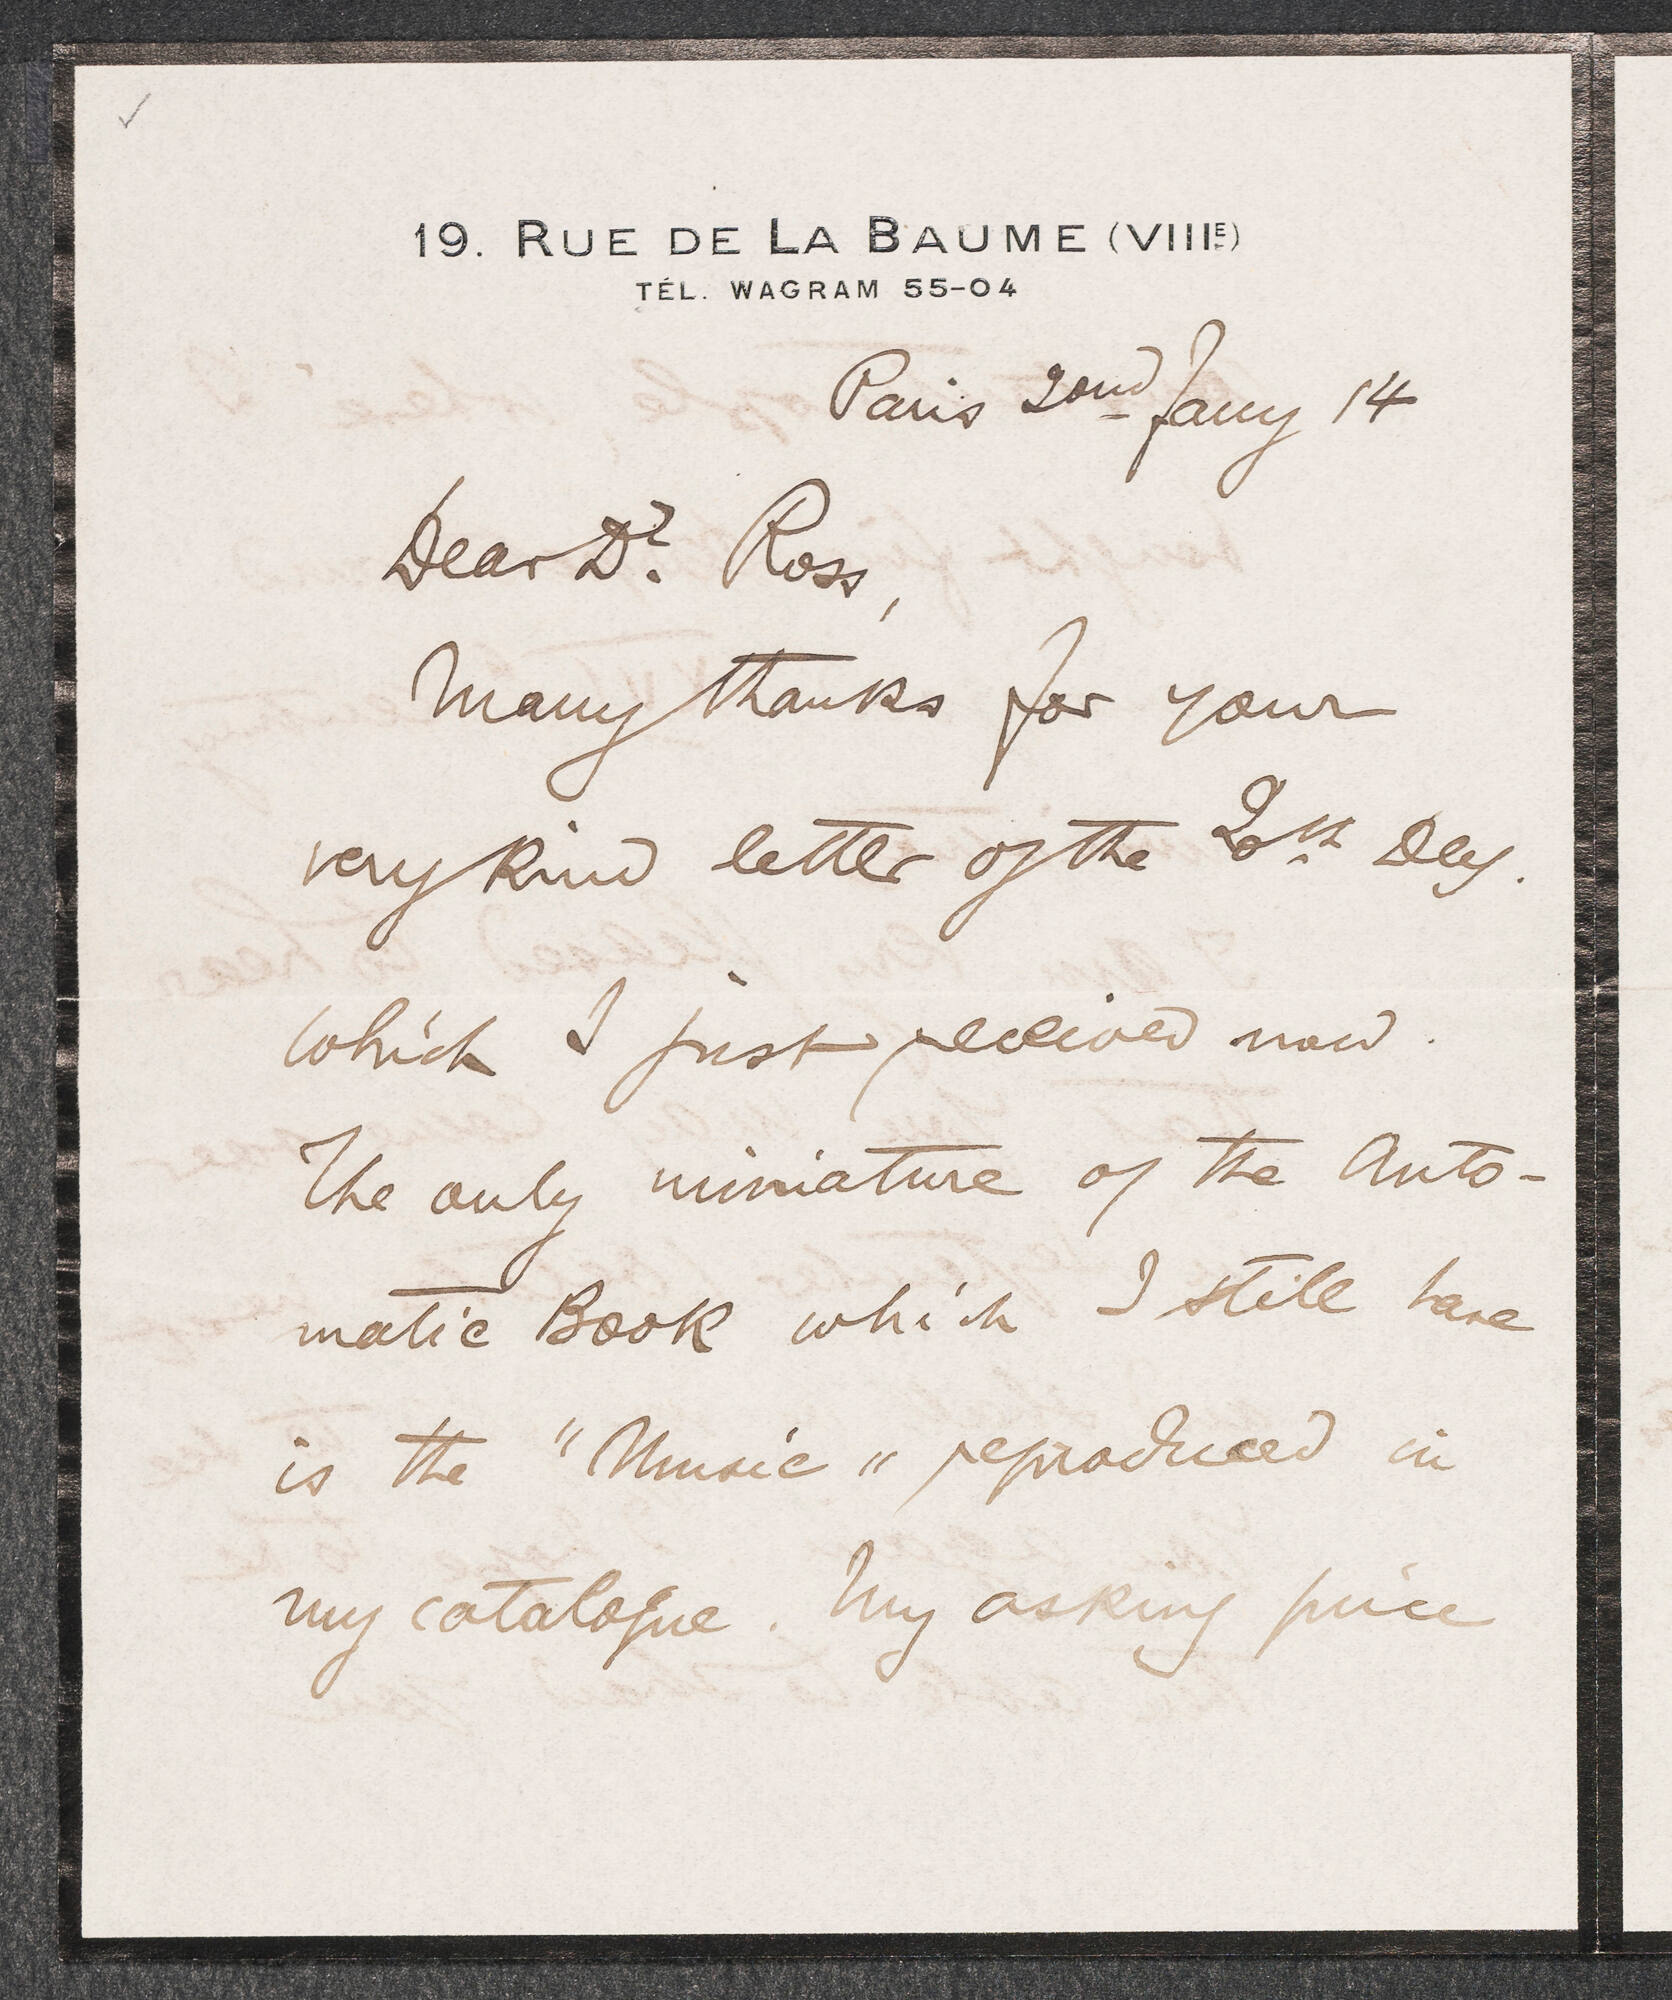 19. RUE DE LA BAUME (VIIIE)
TÉL. WAGRAM 55-04
Paris 22nd Jany 14
Dear Dr. Ross,
Many thanks for your
very kind letter of the
which I just received now.
The only miniature of the Auto-
matic Book which I still have
is the "Music" reproduced in
my catalogue. My asking price